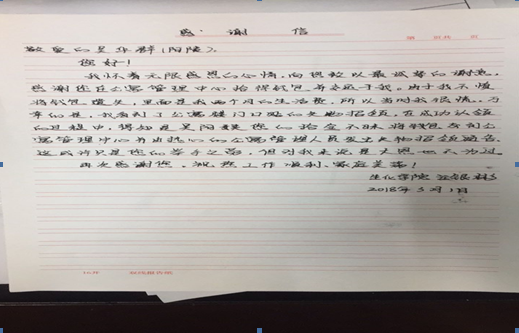 感谢信
第 页共 页
敬爱的吴华群(阿姨):
您好!
我怀着无限感恩的心情,向您致以最诚挚的谢意,
感谢您在公寓管理中心拾得钱包并交还于我。由于我不慎
将钱包遗失,里面是我两个月的生活费,所以当时我很慌。万
幸的是,我看到了公寓楼门口贴的失物招领,在成功认领
的过程中,得知是吴阿姨您的拾金不昧将钱包交到公
寓管理中心并由热心的公寓管理人员发出失物招领通告。
这或许只是您的举手之劳,但对我来说是大恩也不为过。
再次感谢您,祝您工作顺利,家庭美满!
生化学院
2018年3月1日
16开